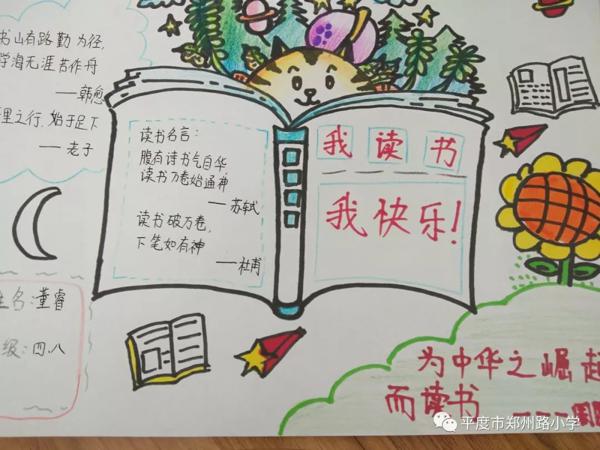 书山有路勤为径,
学海无涯苦作舟
——韩愈
里之行,始于足下
——老子
读书名言:
腹有诗书气自华
读书万卷始通神
——苏轼
读书破万卷,
下笔如有神
——杜甫
我读书
我快乐!
姓名:董睿
级:四.八
为中华之崛起
而读书 ———周
平度市郑州路小学